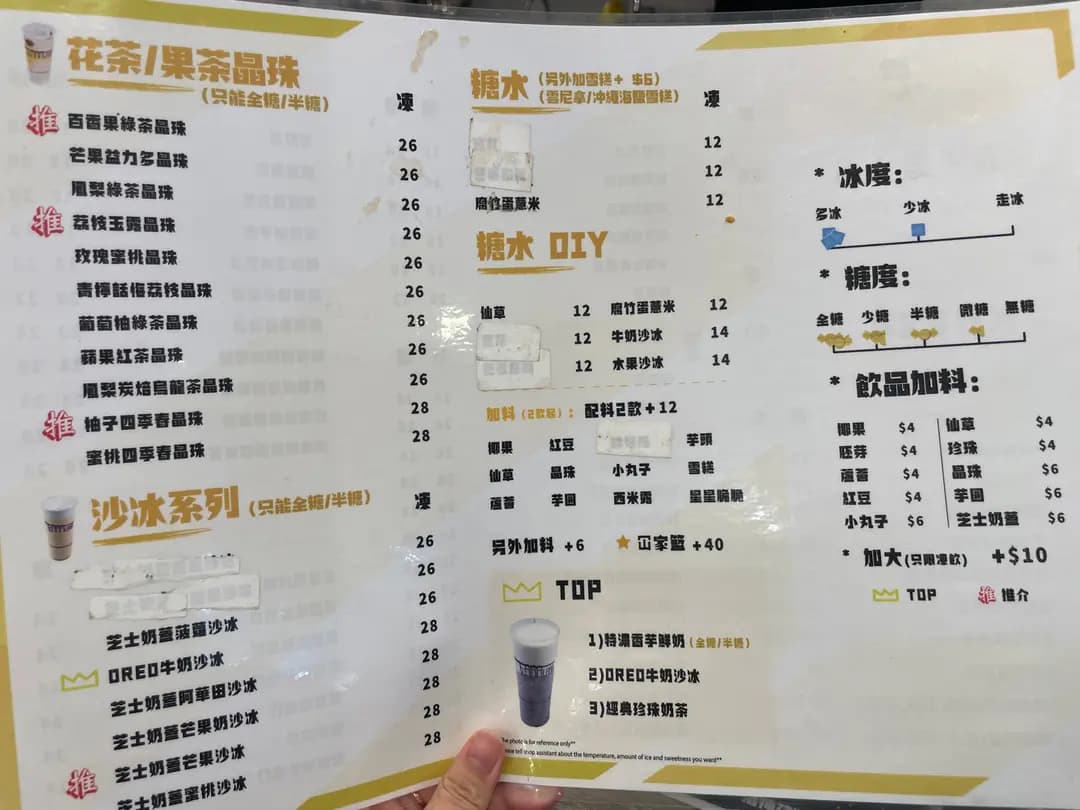 花茶/果茶晶珠
(只能全糖/半糖) 凍
推 百香果綠茶晶珠 26
芒果益力多晶珠 26
鳳梨綠茶晶珠 26
推 荔枝玉露晶珠 26
玫瑰蜜桃晶珠 26
青檸話梅荔枝晶珠 26
葡萄柚綠茶晶珠 26
蘋果紅茶晶珠 26
鳳梨炭焙烏龍茶晶珠 26
推 柚子四季春晶珠 28
蜜桃四季春晶珠 28
沙冰系列 (只能全糖/半糖) 凍
26
26
芝士奶蓋菠蘿沙冰 26
OREO牛奶沙冰 28
芝士奶蓋阿華田沙冰 28
芝士奶蓋芒果奶沙冰 28
推 芝士奶蓋芒果沙冰 28
芝士奶蓋蜜桃沙冰 28
糖水 (另外加雪糕+ $6)
(雲尼拿/沖繩海鹽雪糕) 凍
12
12
腐竹蛋薏米 12
糖水 DIY
仙草 12 腐竹蛋薏米 12
12 牛奶沙冰 14
12 水果沙冰 14
加料 (2款起) : 配料2款+12
椰果 紅豆 芋頭
仙草 晶珠 小丸子 雪糕
蘆薈 芋圓 西米露 星星脆脆
另外加料 +6 冚家籃 +40
TOP
1)特濃香芋鮮奶 (全糖/半糖)
2)OREO牛奶沙冰
3)經典珍珠奶茶
he photo is for reference only**
ease tell shop assistant about the temperature, amount of ice and sweetness you want**
* 冰度:
多冰 少冰 走冰
* 糖度:
全糖 少糖 半糖 微糖 無糖
* 飲品加料:
椰果 $4 仙草 $4
胚芽 $4 珍珠 $4
蘆薈 $4 晶珠 $6
紅豆 $4 芋圓 $6
小丸子 $6 芝士奶蓋 $6
* 加大(只限凍飲) +$10
TOP 推 推介